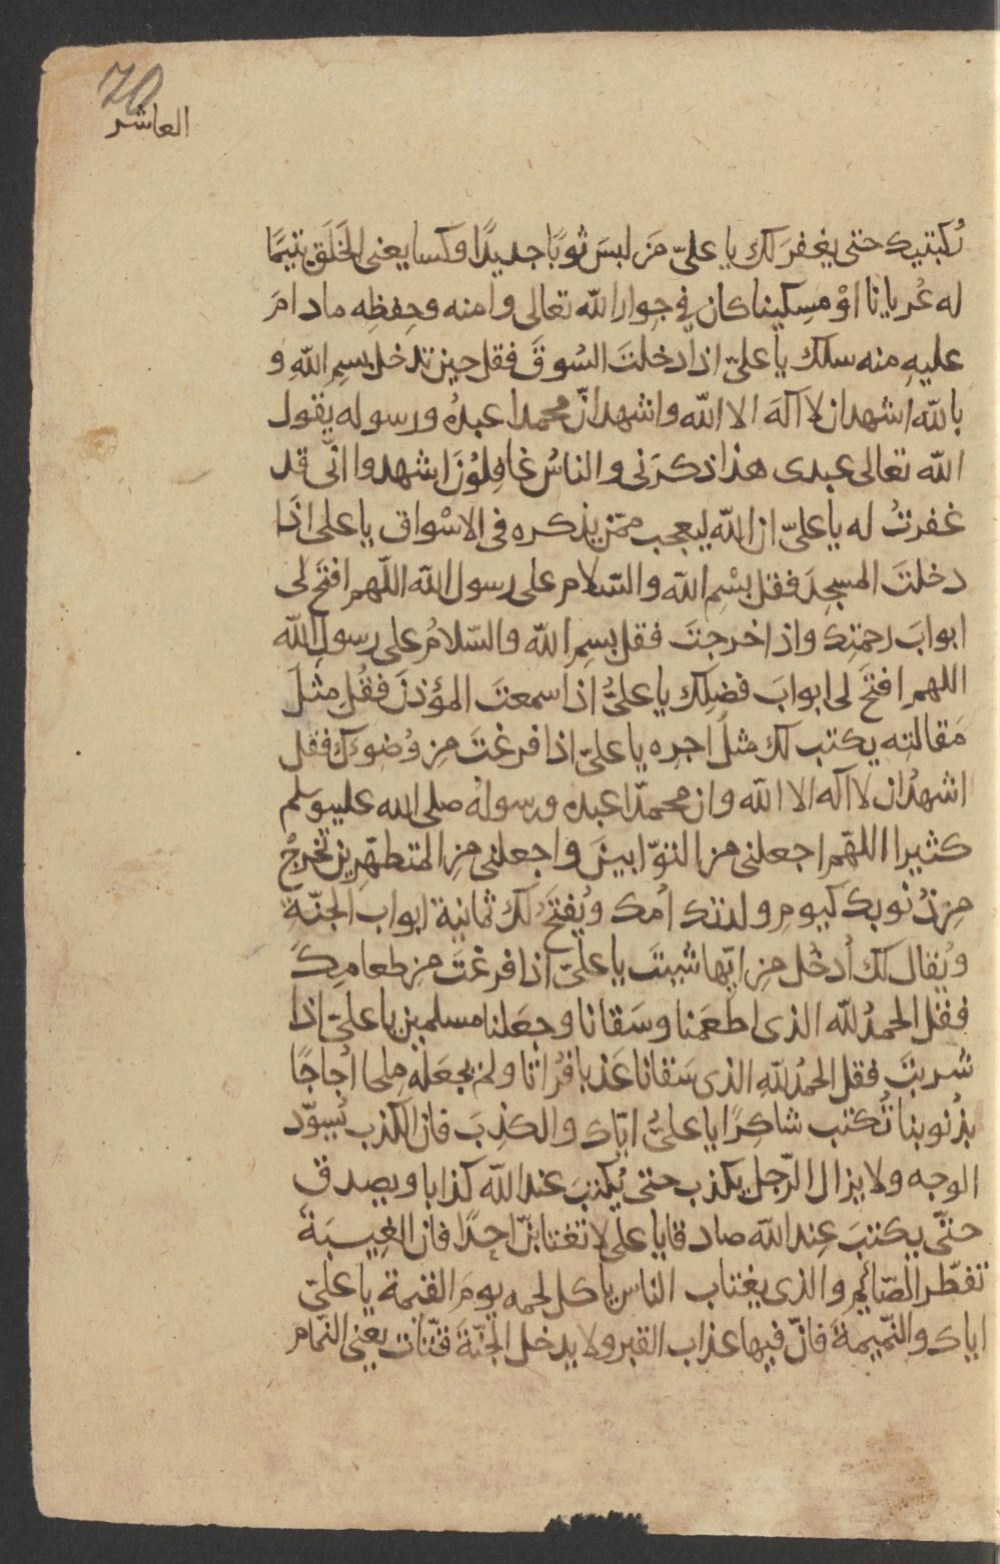 70
العاشر
ركبتيك حتى يغفرَ لك يا عليّ مَن لبسَ ثوبًا جديدًا وكسا يعنى الخَلَق يتيمًا
له عُريانا اوْ مِسكينا كان في جِوار الله تعالى وامنه وحِفظِه ما دامَ
عليهِ منه سلك يا عليّ اذا دخلتَ السُوقَ فقل حين تدخل بسمِ اللهِ و
بالله اشهد ان لا آلهَ الا الله واشهد انّ محمدا عبدهُ ورسوله يقول
الله تعالى عبدى هذا ذكرَنى والناسُ غافِلوُنَ اشهدوا انّى قد
غفرتُ له يا عليّ ان الله ليعجب ممّن يذكره فى الاسْواق يا على اذَا
دخلتَ المسجِدَ فقل بسْمِ الله والسّلام على رسول الله اللّهم افتَح لى
ابوابَ رحمتِك واذا خرجتَ فقل بسمِ الله والسّلامُ على رسول الله
اللهم افتَح لى ابوابَ فضلِك يا علىُّ اذا سمعتَ المؤذنَ فقُل مِثلَ
مَقالتِه يكتب لك مثلُ اجرِه يا علىّ اذا فرغتَ مِن وُضوءك فقل
اشهدُ ان لا آله الا الله وان محمّدًا عبده ورسولُه صلى الله عليه وسلم
كثيرا اللهّم اجعلنى من التوّابينَ واجعلنى مِن المتطهّرِين تخرجْ
مِن ذُنوبك كيومِ ولدتك اُمك ويُفتَح لك ثمانية ابواب الجنّةِ
ويُقال لك اُدخُل مِن ايّها شيئتَ يا عليّ اذا فرغتَ مِن طعامِكَ
فقل الحمدُ لله الذى اطعَمنا وسَقانا وجعَلنا مسلمين يا علىّ اذا
شربتَ فقل الحمدُ للهِ الذى سَقانا عَذبا فُراتا ولم يجعَلْه مِلحا اُجاجًا
بذُنوبنا تُكتب شاكِرًا يا علىُّ ايّاك والكذِبَ فان الكذب يُسوّد
الوجه ولا يزال الرّجل يكذب حتى يُكتبَ عند الله كذابا ويصدق
حتّى يكتبَ عِند الله صادقا يا على لا تغتابنّ احدًا فان الغِيبَةَ
تفطّر الصّائِم والذى يغتاب الناس ياكل لحمه يومَ القيمة يا علىّ
اياك والنّميمةَ فانّ فيها عذاب القبر ولا يدخل الجنّةَ قتّات يعنى النّمام